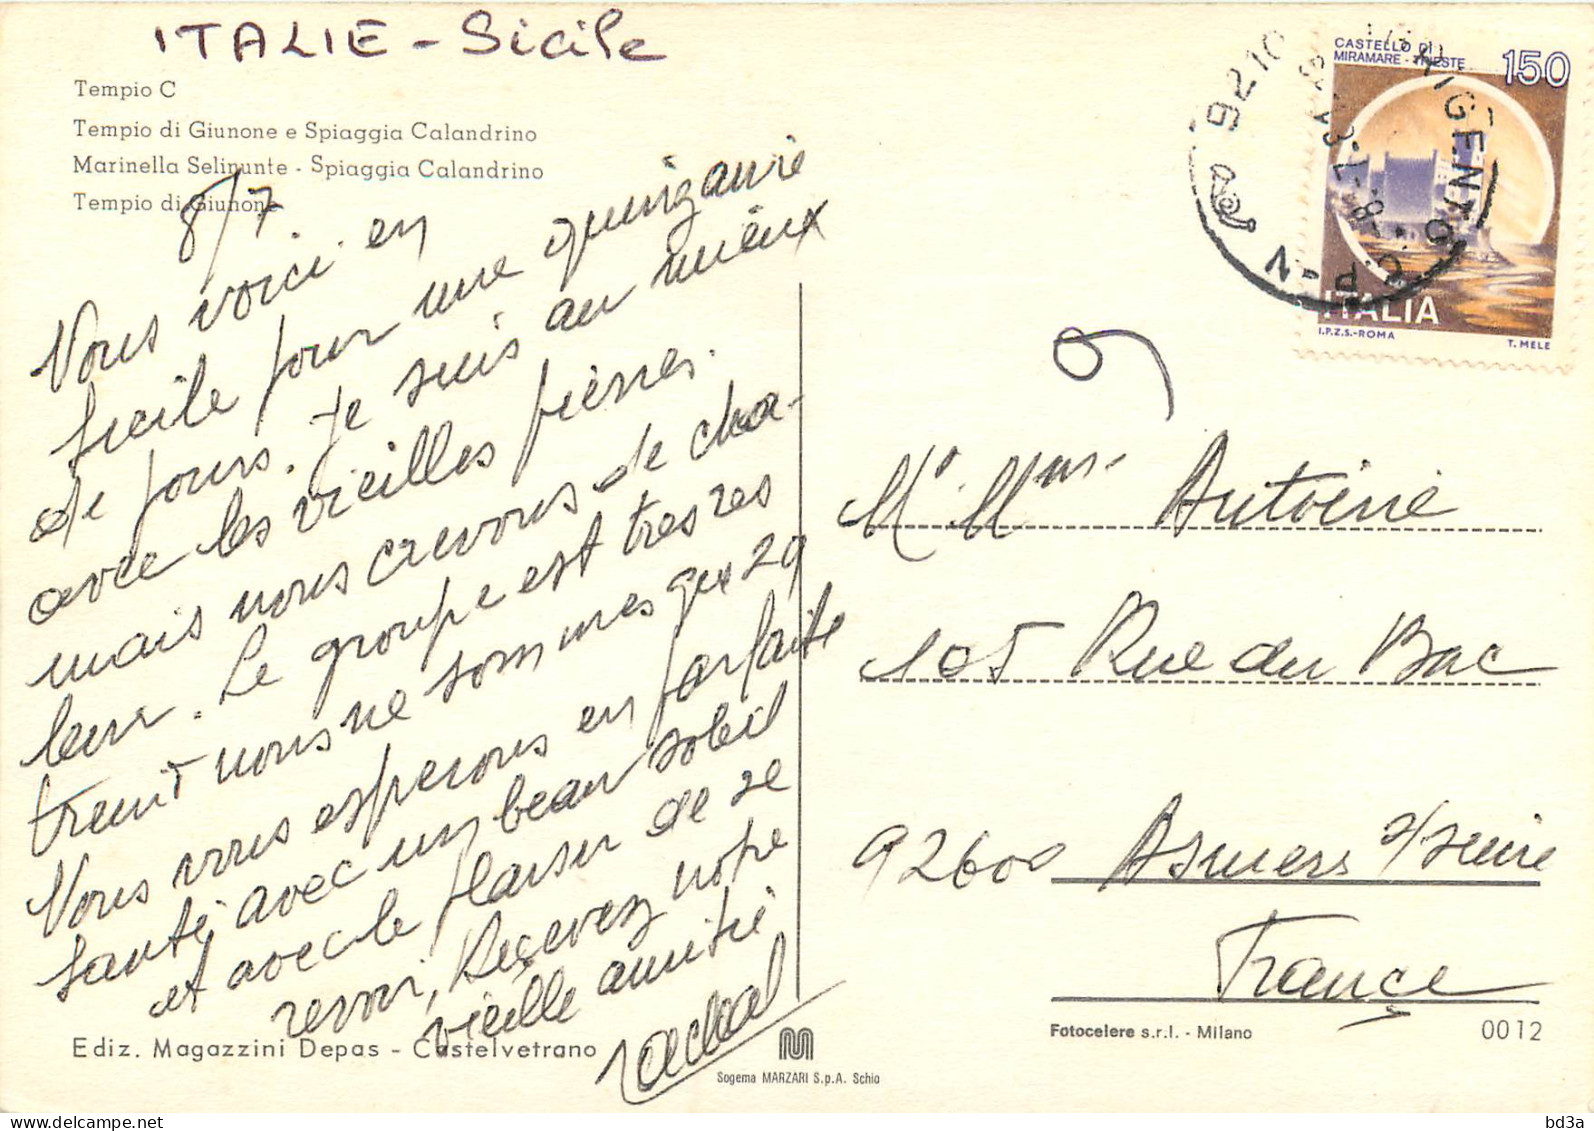 ITALIE - Sicile
Tempio C
Tempio di Giunone e Spiaggia Calandrino
Marinella Selinunte - Spiaggia Calandrino
Tempio di Giunone
8/7
Vous voici en
Sicile pour une quinzaine
de jours. Je suis au mieux
avec les vieilles pierres.
mais nous crevons de cha-
leur. Le groupe est très res
treint nous ne sommes que 29
Vous vous esperons en parfaite
santé avec un beau soleil
et avec le plaisir de se
revoir, Recevez notre
vieille amitié
Ediz. Magazzini Depas - Castelvetrano
CASTELLO DI
MIRAMARE - TRIESTE
150
ITALIA
I.P.Z.S.-ROMA
T. MELE
9210
AGRIGENTO C.P. - N
Mr. Mme. Antoine
105 Rue du Bac
92600 Asnieres s/seine
France
Fotocelere s.r.l. - Milano
0012
Sogema MARZARI S.p.A. Schio
bd3a